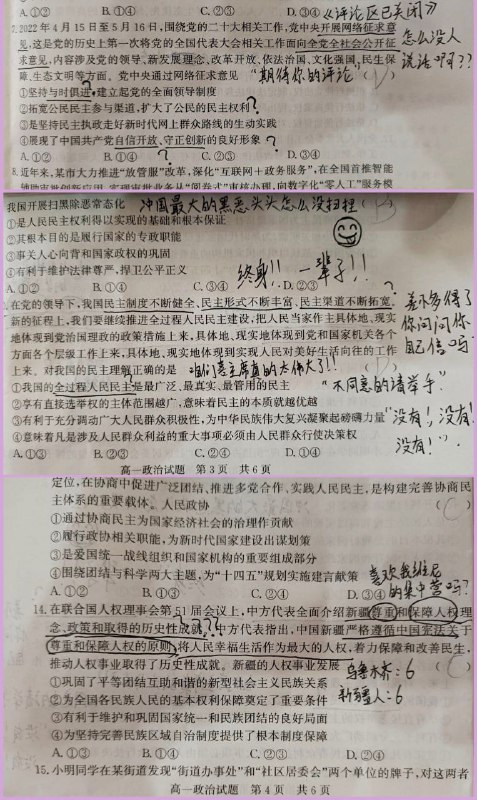 A. ①②　B. ①④　C. ②③　D. ③④ 《评论区已关闭》
7.2022 年 4 月 15 日至 5 月 16 日,围绕党的二十大相关工作,党中央开展网络征求意
见,这是党的历史上第一次将党的全国代表大会相关工作面向全党全社会公开征
求意见,内容涉及党的领导、新发展理念、改革开放、依法治国、文化强国、民生保
障、生态文明等方面。党中央通过网络征求意见
怎么没人
说话啊??
"期待你的评论
①坚持与时俱进,建立起党的全面领导制度
②拓宽公民民主参与渠道,扩大了公民的民主权利?
③是坚持民主执政走好新时代网上群众路线的生动实践
④展现了中国共产党自信开放、守正创新的良好形象?
A. ①②　B. ①④　C. ②③　D. ③④
8.近年来,某市大力推进"放管服"改革,深化"互联网+政务服务",在全国首推智能
我国开展扫黑除恶常态化
中国最大的黑恶头头怎么没扫捏
①是人民民主权利得以实现的基础和根本保证
②其根本目的是履行国家的专政职能
③事关人心向背和国家政权的巩固
④有利于维护法律尊严,捍卫公平正义
A. ①②　B. ①③　C. ③④　D. ②④
终身!! 一辈子!!
在党的领导下,我国民主制度不断健全、民主形式不断丰富、民主渠道不断拓宽。
新的征程上,我们要继续推进全过程人民民主建设,把人民当家作主具体地、现实
地体现到党治国理政的政策措施上来,具体地、现实地体现到党和国家机关各个
方面各个层级工作上来,具体地、现实地体现到实现人民对美好生活向往的工作
上来。对我国的民主理解正确的是
差不多得了
你问问你
自己信吗
咱们毛主席真的太伟大了!!
①我国的全过程人民民主是最广泛、最真实、最管用的民主
"不同意的请举手"
②享有直接选举权的主体范围越广,意味着民主的本质就越优越
③有利于充分调动广大人民群众积极性,为中华民族伟大复兴凝聚起磅礴力量
④意味着凡是涉及人民群众利益的重大事项必须由人民群众行使决策权
"没有!,没有!
没有!"
A. ①③　B. ①④　C. ②③　D. ②④
高一政治试题　第 3 页　共 6 页
定位,在协商中促进广泛团结、推进多党合作、实践人民民主,是构建完善协商民
主体系的重要载体。人民政协 (C)
①通过协商民主为国家经济社会的治理作贡献
②履行政协相关职能,为新时代国家建设出谋划策
③是爱国统一战线组织和国家机构的重要组成部分
④围绕团结与科学两大主题,为"十四五"规划实施建言献策
A. ①②　B. ①④　C. ②③　D. ③④
喜欢我维尼
的集中营吗?
14. 在联合国人权理事会第 51 届会议上,中方代表全面介绍新疆尊重和保障人权理
念、政策和取得的历史性成就。中方代表指出,中国新疆严格遵循中国宪法关于
尊重和保障人权的原则,将人民幸福生活作为最大的人权,着力保障和改善民生,
推动人权事业取得了历史性成就。新疆的人权事业发展
乌鲁木齐:6
新疆人:6
①巩固了平等团结互助和谐的新型社会主义民族关系
②为全国各民族人民的基本权利保障奠定了重要条件
③有利于维护和巩固国家统一和民族团结的良好局面
④为坚持完善民族区域自治制度提供了根本制度保障
A. ①③　B. ①④　C. ②③　D. ②④
15. 小明同学在某街道发现"街道办事处"和"社区居委会"两个单位的牌子,对这两者
高一政治试题　第 4 页　共 6 页